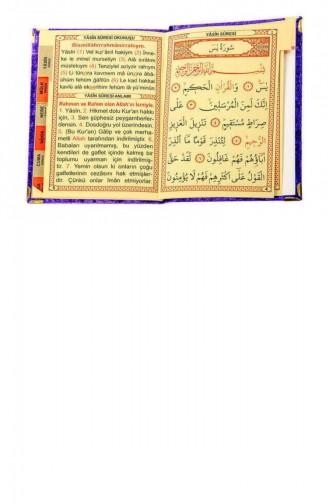 YÂSİN SÛRESİ OKUNUŞU
Bismillâhirrahmânirrahıym.
Yâsîn (1) Vel kur'ânil hakiym (2) İnne-
ke le minel murseliyn (3) Alâ sırâtım
müstekıym (4) Tenziylel aziyzir rahıym
(5) Li tünzira kavmem mâ ünzira âbâ-
ühüm fehüm ğâfilûn (6) Le kad hakkal
kavlü alâ ekserihim fehüm lâ yü'minûn
YÂSİN SÛRESİ ANLAMI
Rahman ve Rahim olan Allah'ın İsmiyle.
1. Yâsîn, 2. Hikmet dolu Kur'an hakkı
için, 3. Sen şüphesiz peygamberler-
densin, 4. Dosdoğru yol üzerindesin.
5. (Bu Kur'an) Gâlip ve çok merha-
metli Allah tarafından indirilmiştir. 6.
Babaları uyarılmamış, bu yüzden
kendileri de gaflet içinde kalmış bir
toplumu uyarman için indirilmiş-
tir. 7. Yemin olsun ki onların çoğu
gafletlerinin cezâsını hak etmişler-
dir. Çünkü onlar îmân etmiyorlar.
YÂSİN SÛRESİ
سُورَةُ يٰسٓ
بِسْمِ اللّٰهِ الرَّحْمٰنِ الرَّحِيمِ
يٰسٓ ۝ وَالْقُرْاٰنِ الْحَكِيمِ ۝
اِنَّكَ لَمِنَ الْمُرْسَلِينَ ۝ عَلٰى
صِرَاطٍ مُسْتَقِيمٍ ۝ تَنْزِيلَ الْعَزِيزِ
الرَّحِيمِ ۝ لِتُنْذِرَ قَوْمًا مَٓا اُنْذِرَ
اٰبَٓاؤُهُمْ فَهُمْ غَافِلُونَ ۝ لَقَدْ حَقَّ
الْقَوْلُ عَلٰٓى اَكْثَرِهِمْ فَهُمْ لَا يُؤْمِنُونَ